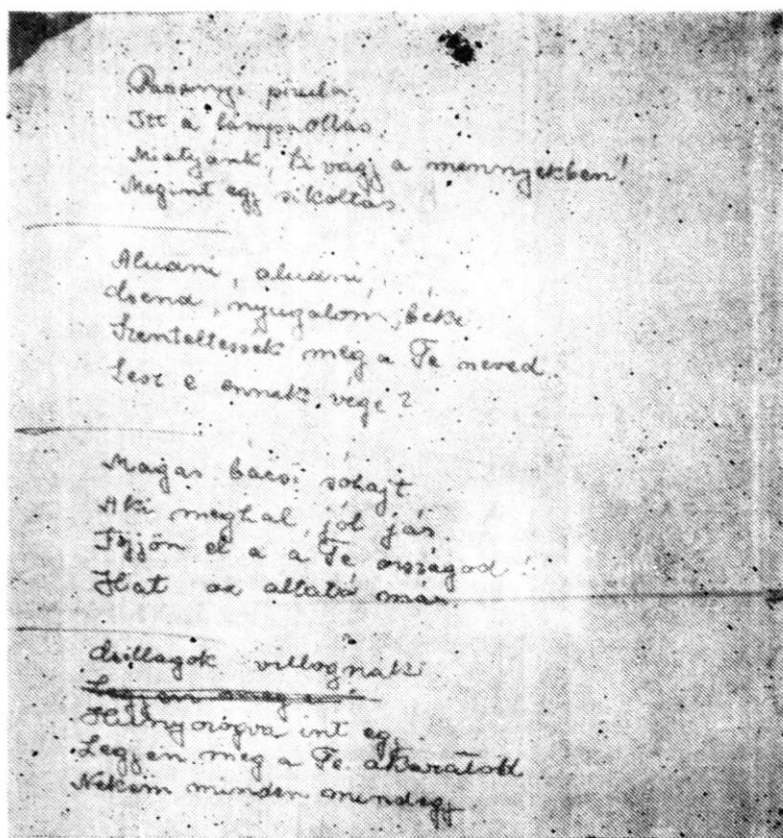 Parányi pirula.
Itt a lámpaoltás.
Miatyánk, ki vagy a mennyekben!
Megint egy sikoltás.
Aludni, aludni,
Csend, nyugalom, béke.
Szenteltessék meg a Te neved.
Lesz e ennek vége?
Magas bácsi sóhajt
Aki meghal, jól jár.
Jőjjön el a a Te országod!
Hat az altató már.
Csillagok villognak
Legyen meg a
Hunyorogva int egy,
Legyen meg a Te akaratod
Nekem minden mindegy